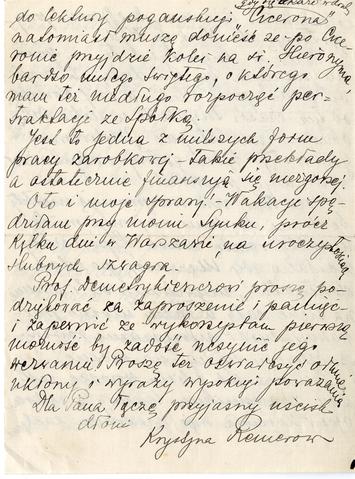 do lektury pogańskiej "Cicerona"
natomiast muszę donieść że po Cice-
ronie przyjdzie kolej na św. Hieronyma
bardzo miłego świętego, o którego
mam też niedługo rozpocząć per-
traktacje ze spółką.
Jest to jedna z milszych form
pracy zarobkowej - takie przekłady
a ostatecznie finansują się nie gorzej.
Oto i moje sprawy. - Wakacje spę-
dziłam przy moim Synku, prócz
kilku dni w Warszawie, na uroczysto-
ślubnych szwagra.
Prof. Demetrykiewiczowi proszę po-
dziękować za zaproszenie i pamięć
i zapewnić że wykorzystam pierwszą
możność by zadość uczynić jego
wezwaniu. Proszę też oświadczyć
ukłony i wyrazy wysokiego poważania
Dla Pana łączę przyjazny uścisk
dłoni
Krystyna Remerow